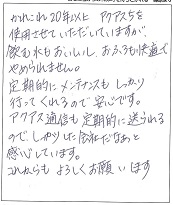 かれこれ20年以上 アクアス5を
使用させていただいていますが、
飲む水もおいしい、おふろも快適で
やめられません。
定期的にメンテナンスもしっかり
行ってくれるので安心です。
アクアス通信も定期的に送られる
のでしっかりした会社だなぁと
感心しています。
これからも よろしくお願いします